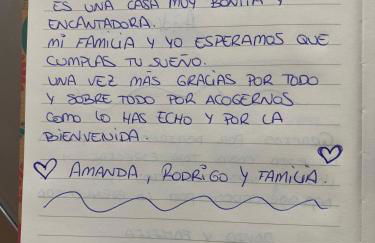 ES UNA CASA MUY BONITA Y
ENCANTADORA.
MI FAMILIA Y YO ESPERAMOS QUE
CUMPLAS TU SUEÑO.
UNA VEZ MÁS GRACIAS POR TODO
Y SOBRE TODO POR ACOGERNOS
COMO LO HAS ECHO Y POR LA
BIENVENIDA.
AMANDA, RODRIGO Y FAMILIA.